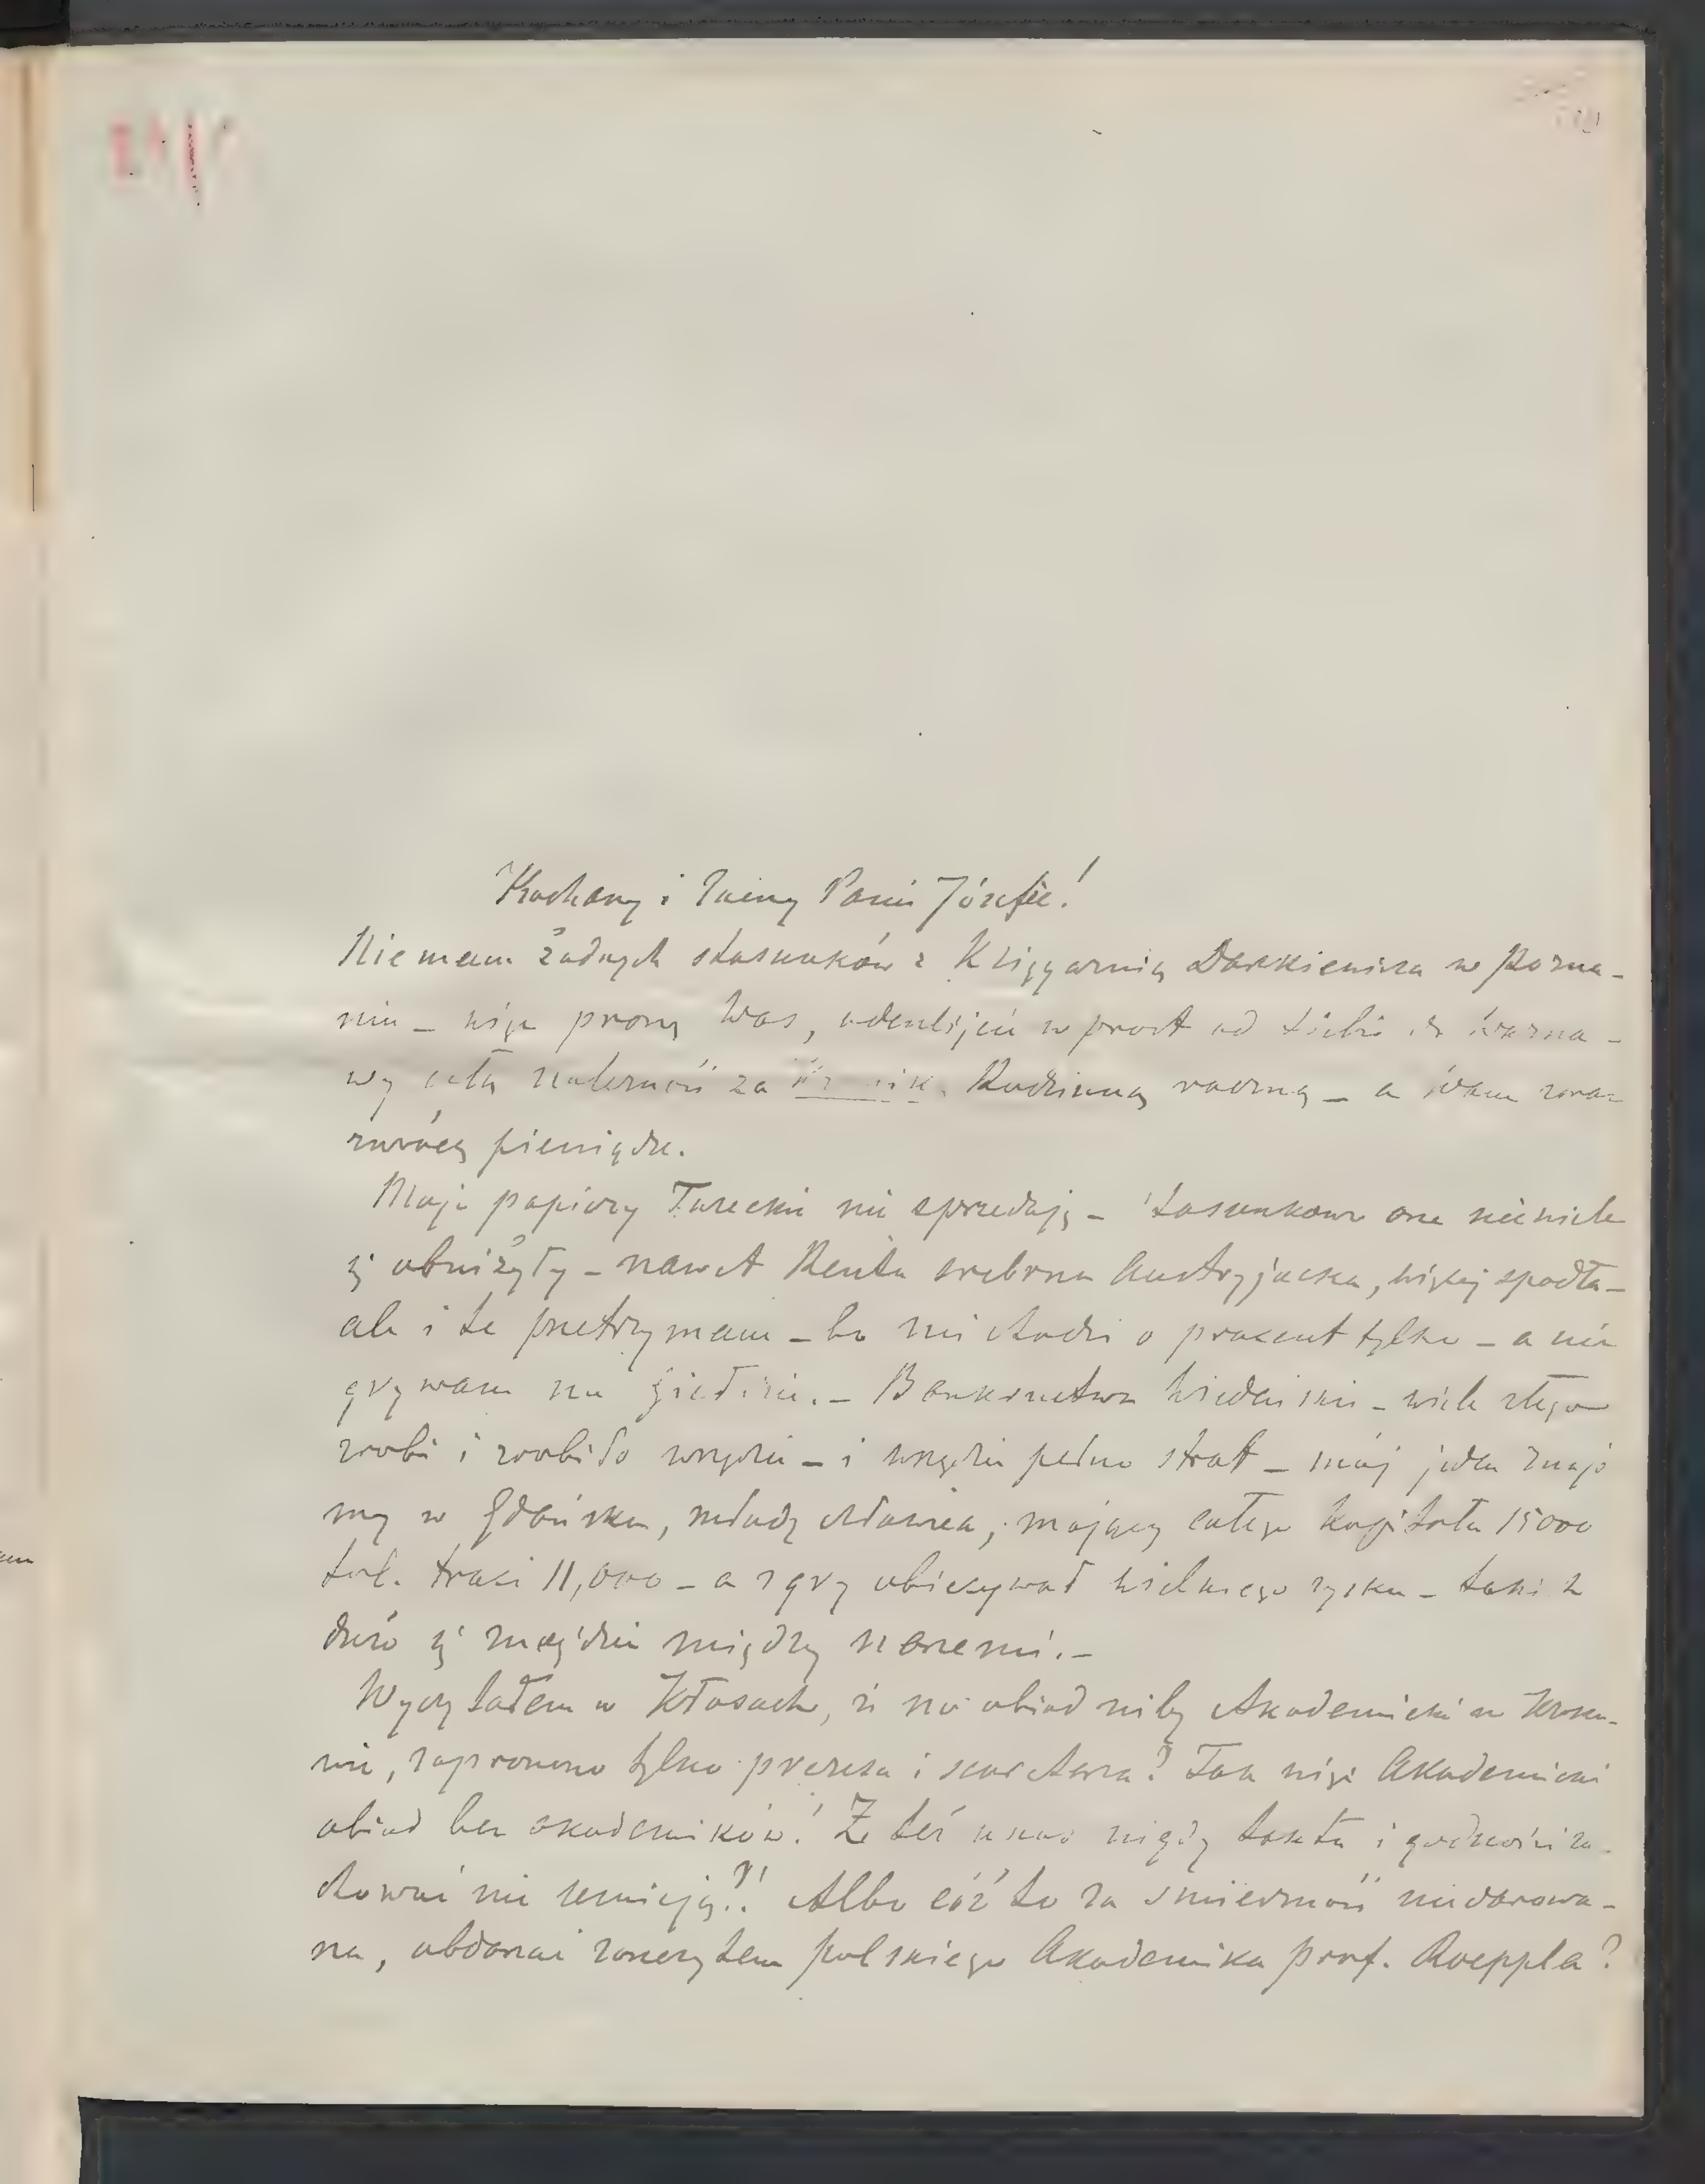 Kochany i Zacny Panie Józefie!
Niemam żadnych stosunków z Księgarnią Daszkiewicza w Pozna-
niu – więc proszę Was, odeślijcie wprost od siebie do Warsza-
wy całą należność za Rodzinną radzną – a Wam zaraz
zwrócę pieniądze.
Moje papiery Tureckie nie sprzedaję – Stosunkowo one niewiele
się obniżyły – nawet Renta srebrna Austryjacka, więcej spadła –
ale i te przetrzymam – bo mi chodzi o procent tylko – a nie
grywam na giełdzie. – Bankructwa Wiedeńskie – wiele złego
zrobi i zrobiło wszędzie – i wszędzie pełno strat – mój jeden znajo
my w Gdańsku, młody człowiek, mający całego kapitału 15000
tal. traci 11,000 – a z gry obiecywał wielkiego zysku – takich
dużo się znajdzie między naszemi. –
Wyczytałem w Kłosach, iż na obiad niby Akademicki w Krako-
wie, zaproszono tylko prezesa i sekretarza? Tak więc Akademicki
obiad bez akademików! Że też u nas nigdy taktu i godności za-
chować nie umieją?! Albo cóż to za śmieszność niedarowa-
na, obdarzać zaszczytem polskiego Akademika prof. Roeppla?